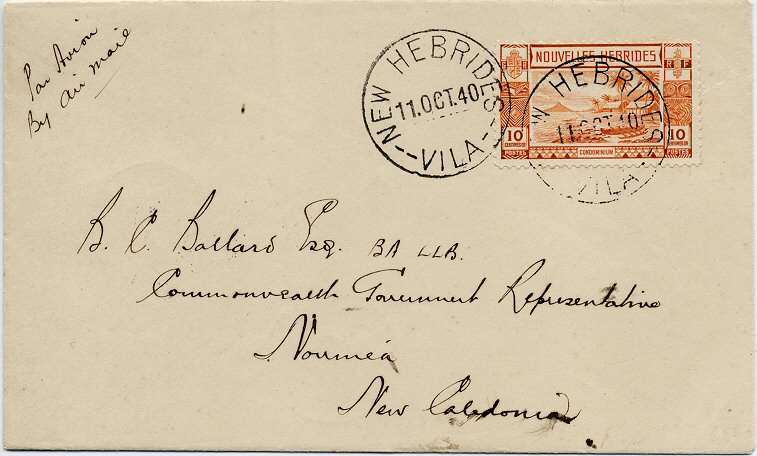 Par Avion
By air mail
NEW HEBRIDES
11.OCT.40
--VILA--
NOUVELLES HEBRIDES
R F
10 10
CENTIMES OR
POSTES
CONDOMINIUM
NEW HEBRIDES
11.OCT.40
VILA
B. C. Ballard Esq. BA LLB.
Commonwealth Government Representative
Nouméa
New Caledonia